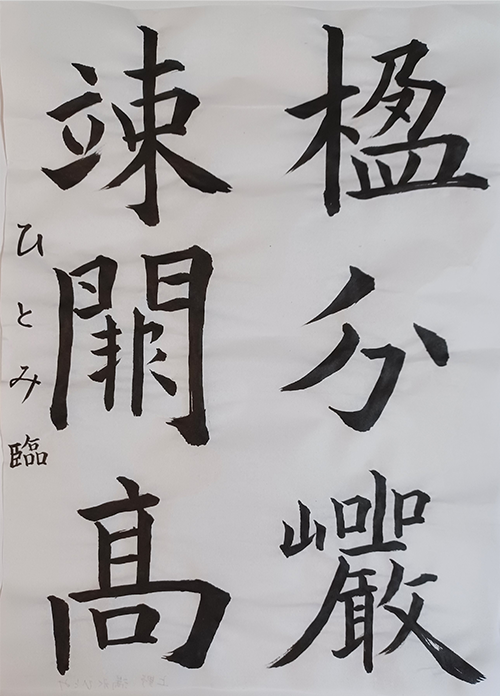 楹分巖
竦闕髙
ひとみ臨